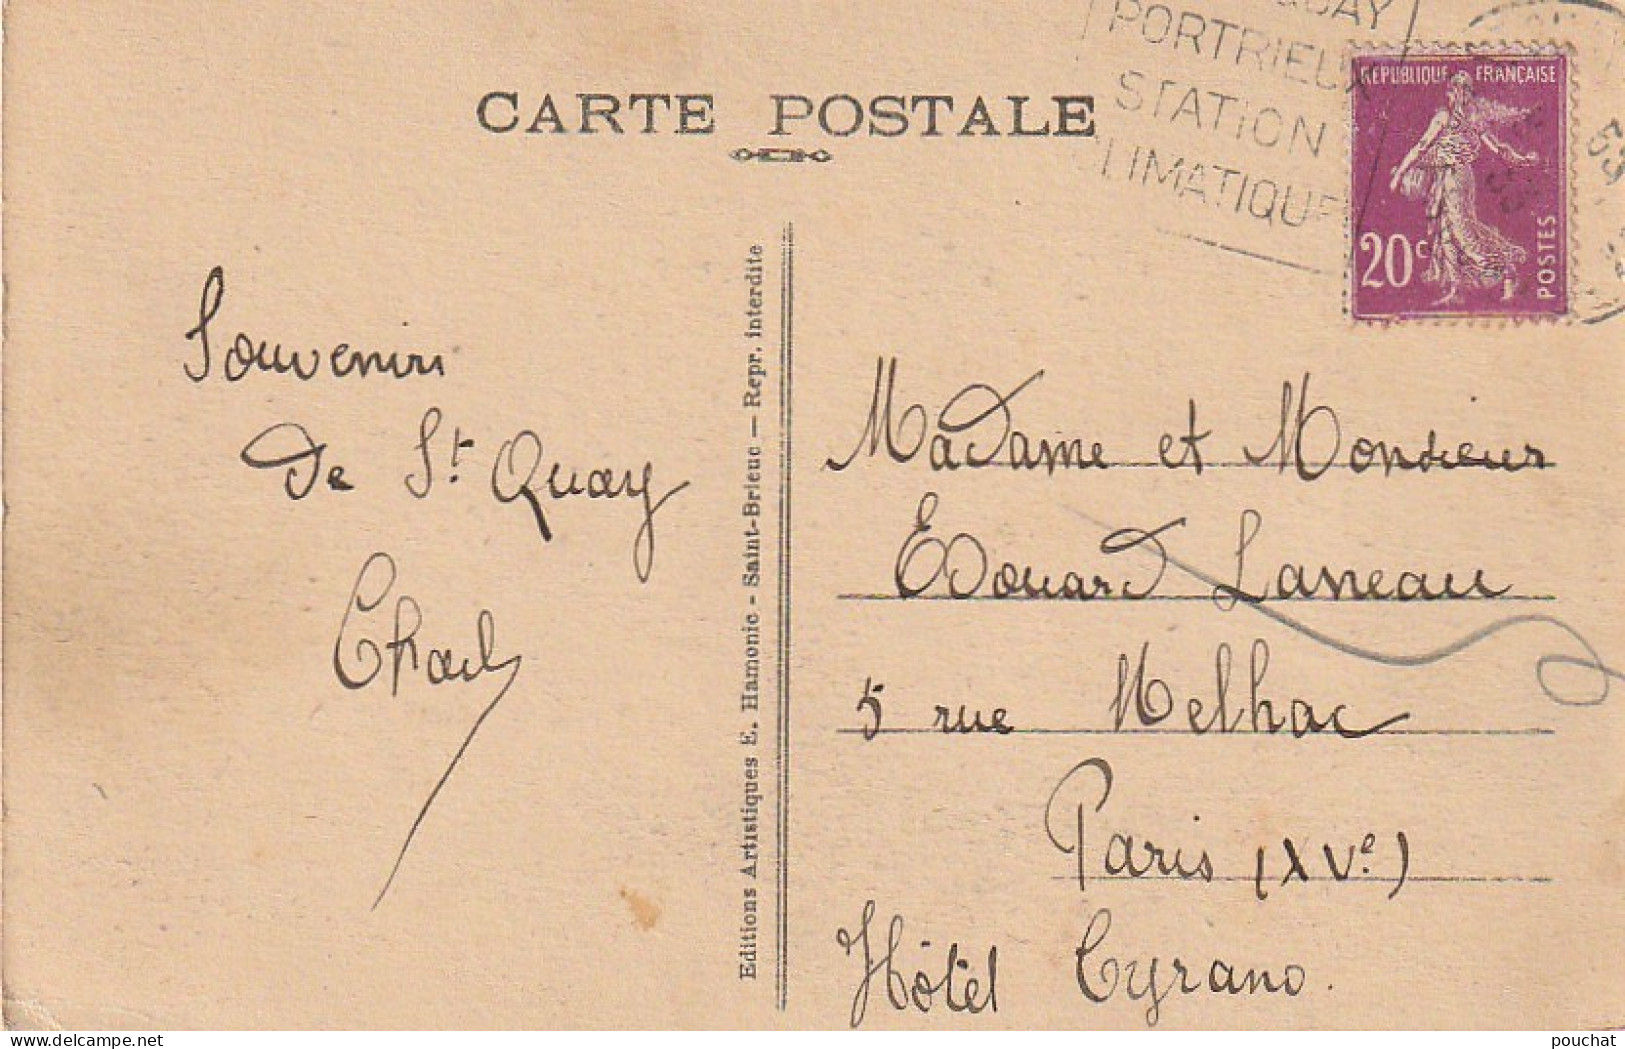 CARTE POSTALE
QUAY
PORTRIEUX
STATION
CLIMATIQUE
REPUBLIQUE FRANÇAISE
20c
POSTES
Souvenirs
de St Quay
Charly
Editions Artistiques E. Hamonic - Saint-Brieuc — Repr. interdite
Madame et Monsieur
Edouard Laneau
5 rue Melhac
Paris (XVe)
Hôtel Cyrano.
www.delcampe.net
pouchat